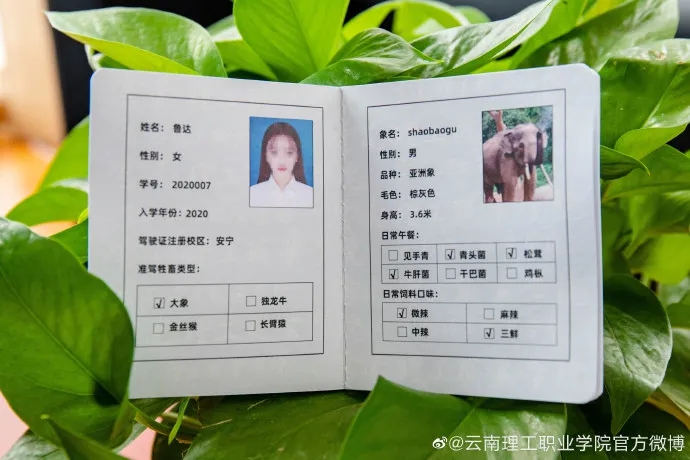 姓名： 鲁达
性别： 女
学号： 2020007
入学年份：2020
驾驶证注册校区：安宁
准驾牲畜类型：
√ 大象 独龙牛
金丝猴 长臂猿
象名： shaobaogu
性别： 男
品种： 亚洲象
毛色： 棕灰色
身高： 3.6米
日常午餐：
见手青 √ 青头菌 √ 松茸
√ 牛肝菌 干巴菌 鸡枞
日常饲料口味：
√ 微辣 麻辣
中辣 √ 三鲜
@云南理工职业学院官方微博